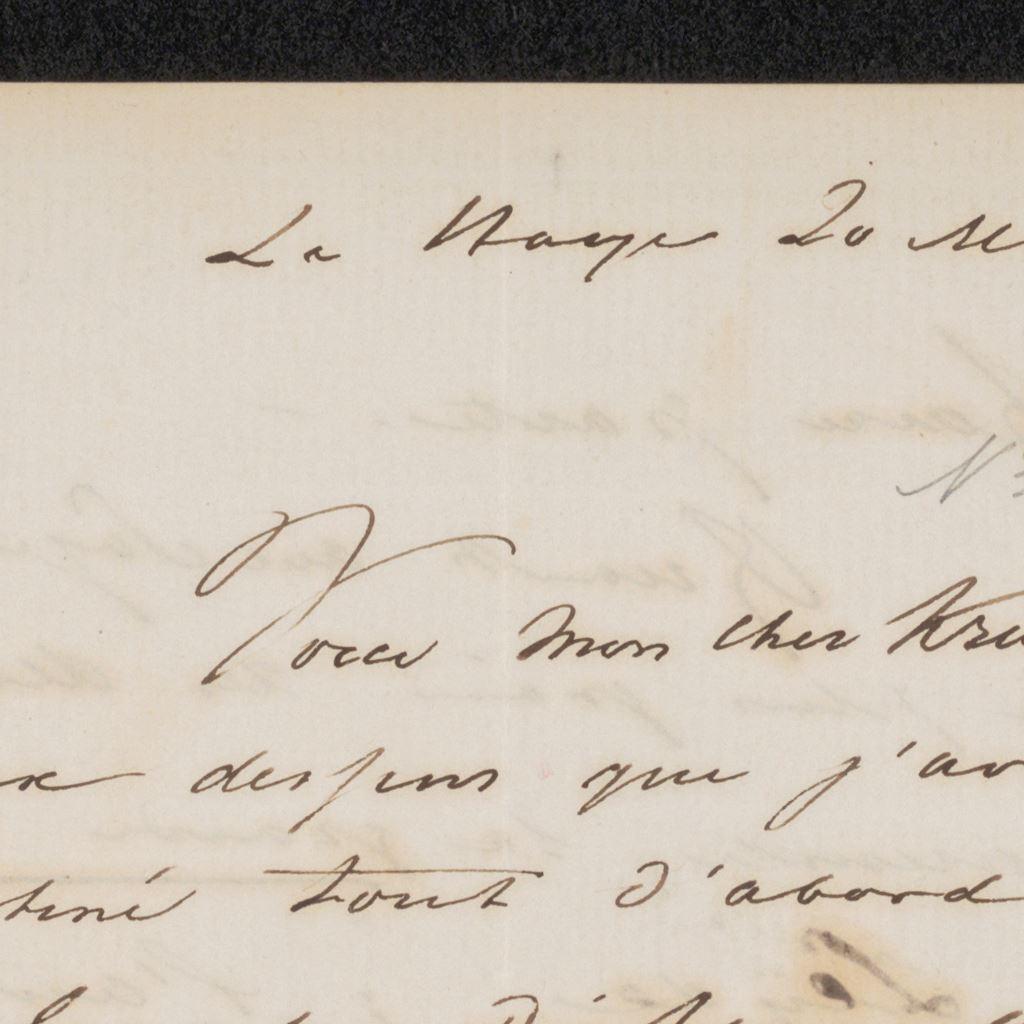 La Haye 20 M
N
Voici mon cher Kru
dessins que j'av
tiné tout d'abord